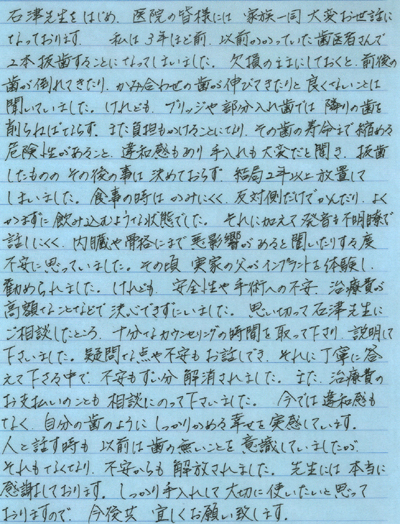 石津先生をはじめ、医院の皆様には 家族一同 大変お世話に
なっております。 私は3年ほど前、以前かかっていた歯医者さんで
2本抜歯することになってしまいました。欠損のままにしておくと、前後の
歯が倒れてきたり、かみ合わせの歯が伸びてきたりと良くないことは
聞いていました。けれども、ブリッジや部分入れ歯では 隣りの歯を
削らねばならず、また負担もかけることになり、その歯の寿命まで縮める
危険性があること、違和感もあり手入れも大変だと聞き、抜歯
したものの その後の事は 決めておらず 結局2年以上放置して
しまいました。食事の時は かみにくく、反対側だけでかんだり、よく
かまずに飲み込むような状態でした。それに加えて発音も不明瞭で
話しにくく、内臓や骨格にまで悪影響があると聞いたりする度
不安に思っていました。その頃 実家の父がインプラントを体験し、
勧められました。けれども、安全性や手術への不安、治療費が
高額なことなどで 決心できずにいました。思い切って石津先生に
ご相談したところ、十分なカウンセリングの時間を取って下さり、説明して
下さいました。疑問な点や不安もお話しでき、それに丁寧に答
えて下さる中で、不安もずい分 解消されました。また、治療費の
お支払いのことも 相談にのって下さいました。 今では違和感も
なく、自分の歯のように しっかりかめる幸せを実感しています。
人と話す時も 以前は歯の無いことを意識していましたが
それもなくなり、不安からも 解放されました。先生には 本当に
感謝しております。しっかり手入れして 大切に使いたいと思って
おりますので、今後共 宜しくお願い致します。